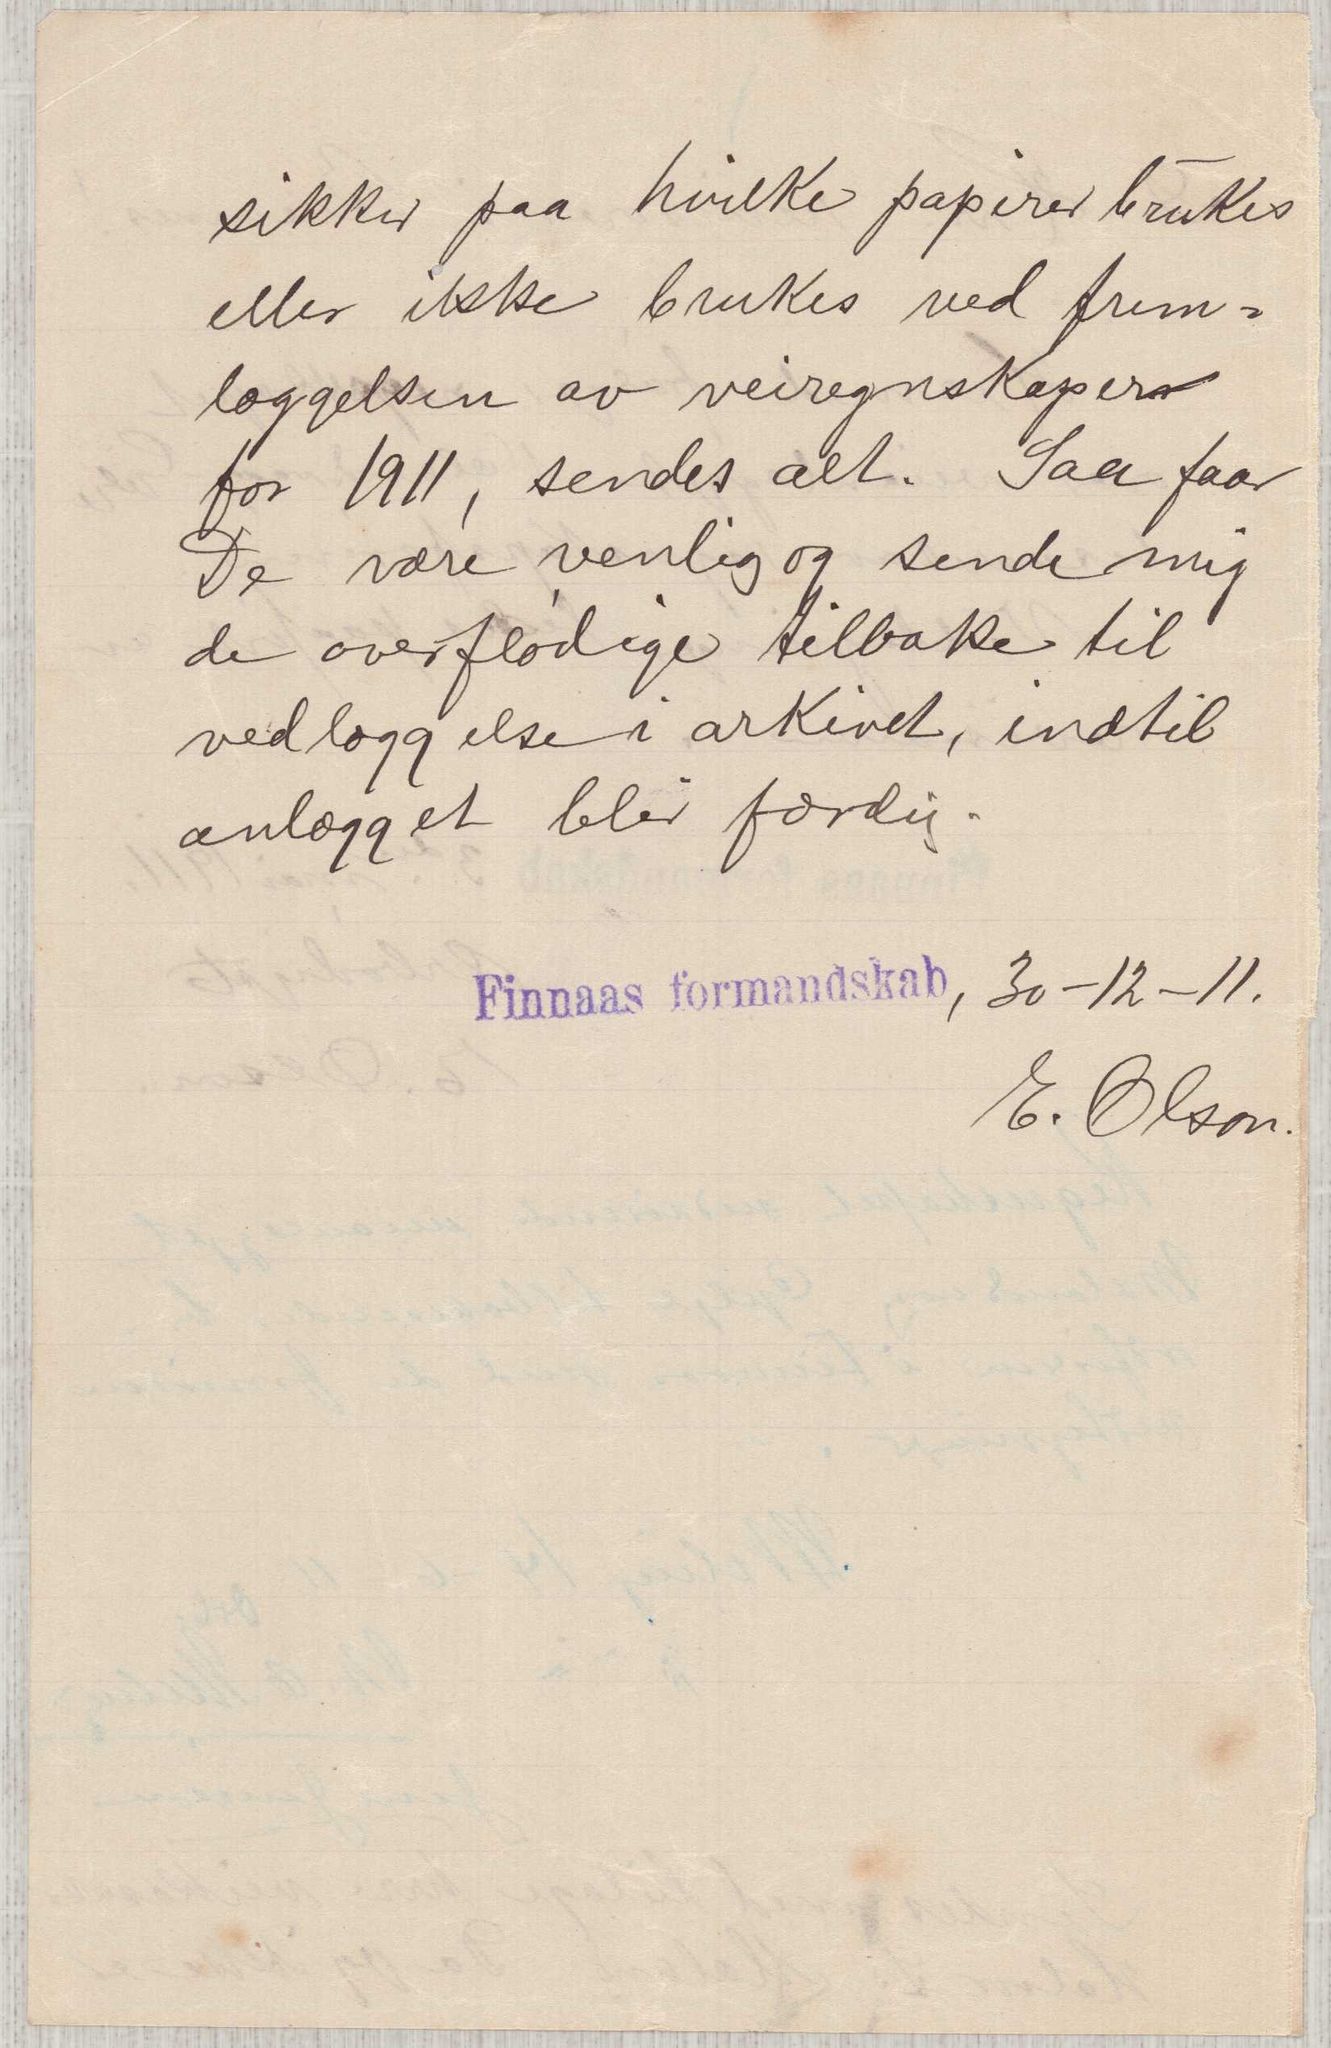 sikker paa hvilke papirer brukes
eller ikke brukes ved frem-
læggelsen av veiregnskaper
for 1911, sendes alt. Saa faar
De være venlig og sende mig
de overflødige tilbake til
vedlæggelse i arkivet, indtil
anlægget blir færdig.
Finnaas formandskab, 30-12-11.
E. Olson.